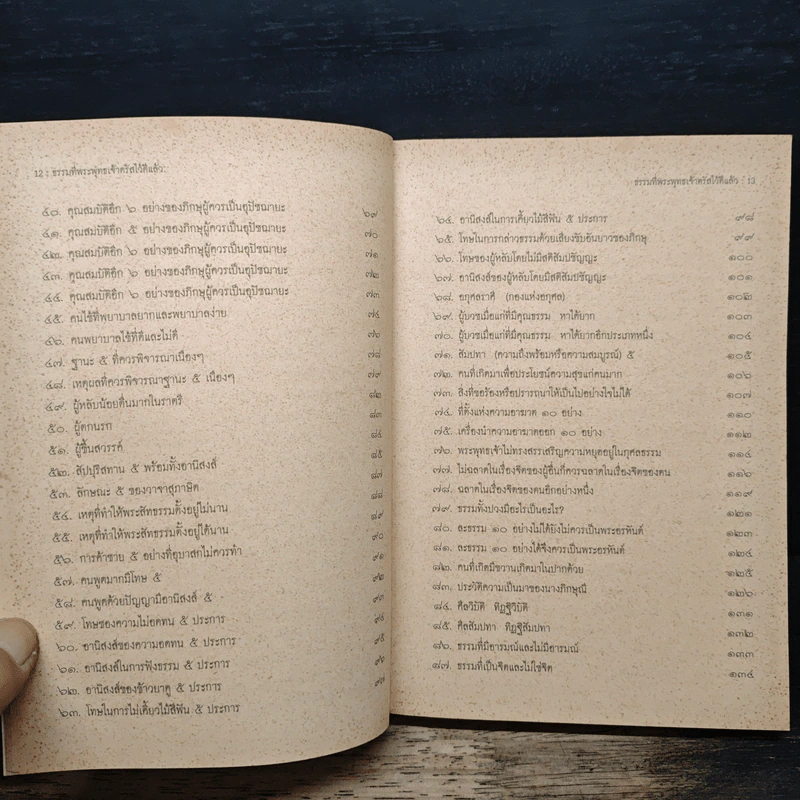 12 : ธรรมที่พระพุทธเจ้าตรัสไว้ดีแล้ว
๔๐. คุณสมบัติอีก ๖ อย่างของภิกษุผู้ควรเป็นอุปัชฌายะ ๖๙
๔๑. คุณสมบัติอีก ๕ อย่างของภิกษุผู้ควรเป็นอุปัชฌายะ ๗๐
๔๒. คุณสมบัติอีก ๖ อย่างของภิกษุผู้ควรเป็นอุปัชฌายะ ๗๑
๔๓. คุณสมบัติอีก ๖ อย่างของภิกษุผู้ควรเป็นอุปัชฌายะ ๗๒
๔๔. คุณสมบัติอีก ๖ อย่างของภิกษุผู้ควรเป็นอุปัชฌายะ ๗๓
๔๕. คนไข้ที่พยาบาลยากและพยาบาลง่าย ๗๔
๔๖. คนพยาบาลไข้ที่ดีและไม่ดี ๗๖
๔๗. ฐานะ ๕ ที่ควรพิจารณาเนืองๆ ๗๘
๔๘. เหตุผลที่ควรพิจารณาฐานะ ๕ เนืองๆ ๗๙
๔๙. ผู้หลับน้อยตื่นมากในราตรี ๘๒
๕๐. ผู้ตกนรก ๘๓
๕๑. ผู้ขึ้นสวรรค์ ๘๔
๕๒. สัปปุริสทาน ๕ พร้อมทั้งอานิสงส์ ๘๕
๕๓. ลักษณะ ๕ ของวาจาสุภาษิต ๘๗
๕๔. เหตุที่ทำให้พระสัทธรรมตั้งอยู่ไม่นาน ๘๘
๕๕. เหตุที่ทำให้พระสัทธรรมตั้งอยู่ได้นาน ๘๙
๕๖. การค้าขาย ๕ อย่างที่อุบาสกไม่ควรทำ ๙๐
๕๗. คนพูดมากมีโทษ ๕ ๙๑
๕๘. คนพูดด้วยปัญญามีอานิสงส์ ๕ ๙๒
๕๙. โทษของความไม่อดทน ๕ ประการ ๙๓
๖๐. อานิสงส์ของความอดทน ๕ ประการ ๙๔
๖๑. อานิสงส์ในการฟังธรรม ๕ ประการ ๙๕
๖๒. อานิสงส์ของข้าวยาคู ๕ ประการ ๙๖
๖๓. โทษในการไม่เคี้ยวไม้สีฟัน ๕ ประการ ๙๗
ธรรมที่พระพุทธเจ้าตรัสไว้ดีแล้ว : 13
๖๔. อานิสงส์ในการเคี้ยวไม้สีฟัน ๕ ประการ ๙๘
๖๕. โทษในการกล่าวธรรมด้วยเสียงขับอันยาวของภิกษุ ๙๙
๖๖. โทษของผู้หลับโดยไม่มีสติสัมปชัญญะ ๑๐๐
๖๗. อานิสงส์ของผู้หลับโดยมีสติสัมปชัญญะ ๑๐๑
๖๘. อกุศลราศี (กองแห่งอกุศล) ๑๐๒
๖๙. ผู้บวชเมื่อแก่ที่มีคุณธรรม หาได้ยาก ๑๐๓
๗๐. ผู้บวชเมื่อแก่ที่มีคุณธรรม หาได้ยากอีกประเภทหนึ่ง ๑๐๔
๗๑. สัมปทา (ความถึงพร้อมหรือความสมบูรณ์) ๕ ๑๐๕
๗๒. คนที่เกิดมาเพื่อประโยชน์ความสุขแก่คนมาก ๑๐๖
๗๓. สิ่งที่ขอร้องหรือปรารถนาให้เป็นไปอย่างใจไม่ได้ ๑๐๗
๗๔. ที่ตั้งแห่งความอาฆาต ๑๐ อย่าง ๑๑๐
๗๕. เครื่องนำความอาฆาตออก ๑๐ อย่าง ๑๑๒
๗๖. พระพุทธเจ้าไม่ทรงสรรเสริญความหยุดอยู่ในกุศลธรรม ๑๑๔
๗๗. ไม่ฉลาดในเรื่องจิตของผู้อื่นก็ควรฉลาดในเรื่องจิตของตน ๑๑๖
๗๘. ฉลาดในเรื่องจิตของตนอีกอย่างหนึ่ง ๑๑๙
๗๙. ธรรมทั้งปวงมีอะไรเป็นอะไร? ๑๒๑
๘๐. ละธรรม ๑๐ อย่างไม่ได้ยังไม่ควรเป็นพระอรหันต์ ๑๒๓
๘๑. ละธรรม ๑๐ อย่างได้จึงควรเป็นพระอรหันต์ ๑๒๔
๘๒. คนที่เกิดมีขวานเกิดมาในปากด้วย ๑๒๕
๘๓. ประวัติความเป็นมาของนางภิกษุณี ๑๒๖
๘๔. ศีลวิบัติ ทิฏฐิวิบัติ ๑๓๑
๘๕. ศีลสัมปทา ทิฏฐิสัมปทา ๑๓๒
๘๖. ธรรมที่มีอารมณ์และไม่มีอารมณ์ ๑๓๓
๘๗. ธรรมที่เป็นจิตและไม่ใช่จิต ๑๓๔